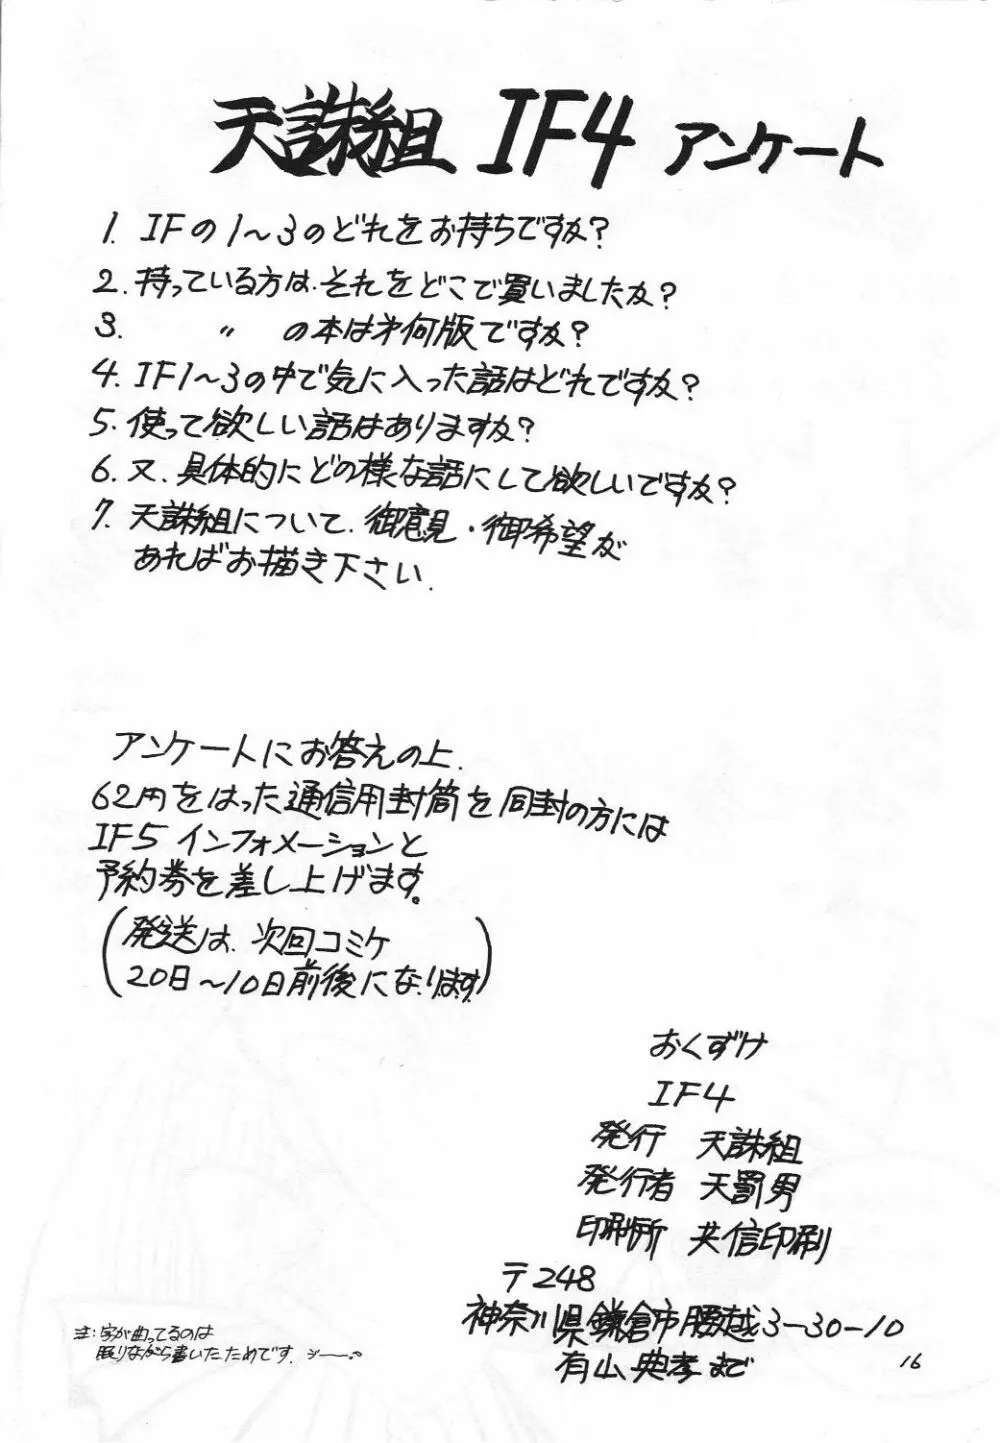 天誅組 IF4 アンケート
1. IFの1〜3のどれをお持ちですか?
2. 持っている方は.それをどこで買いましたか?
3. 〃 の本は才何版ですか?
4. IF1〜3の中で気に入った話はどれですか?
5. 使って欲しい話はありますか?
6. 又、具体的にどの様な話にして欲しいですか?
7. 天誅組について.御意見・御希望が
あればお描き下さい.
アンケートにお答えの上.
62円をはった通信用封筒を同封の方には
IF5 インフォメーションと
予約券を差し上げます。
(発送は、次回コミケ
20日〜10日前後になります)
おくずけ
IF4
発行 天誅組
発行者 天罰男
印刷所 共信印刷
〒248
神奈川県鎌倉市腰越3-30-10
有山典孝まで
注:字が曲ってるのは
眠りながら書いたためです.
16